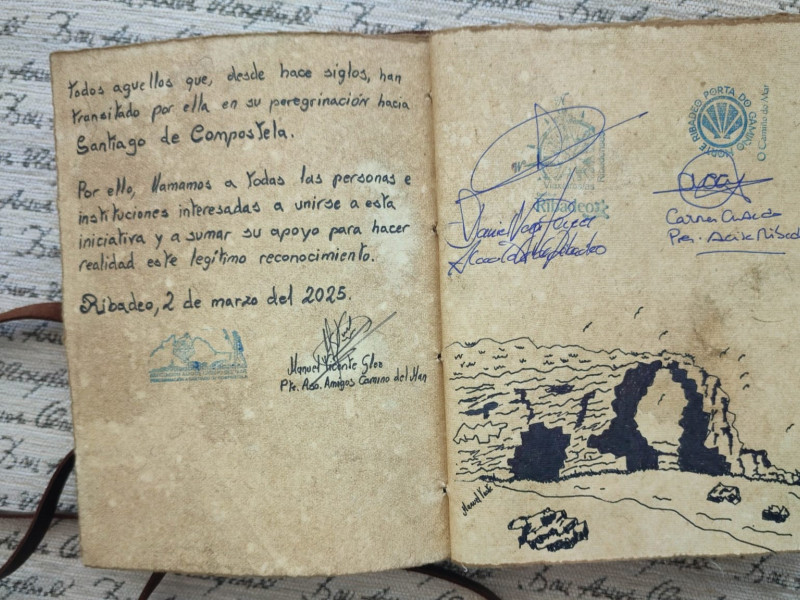 todos aquellos que, desde hace siglos, han
transitado por ella en su peregrinación hacia
Santiago de Compostela.
Por ello, llamamos a todas las personas e
instituciones interesadas a unirse a esta
iniciativa y a sumar su apoyo para hacer
realidad este legítimo reconocimiento.
Ribadeo, 2 de marzo del 2025.
Manuel Vicente
Pte. Aso. Amigos Camino del Mar
Ribadeo
RIBADEO PORTA DO CAMIÑO NORTE
O Camiño do Mar
Daniel
Ribadeo
Carmen
Pres. Acisa Ribadeo
Manuel